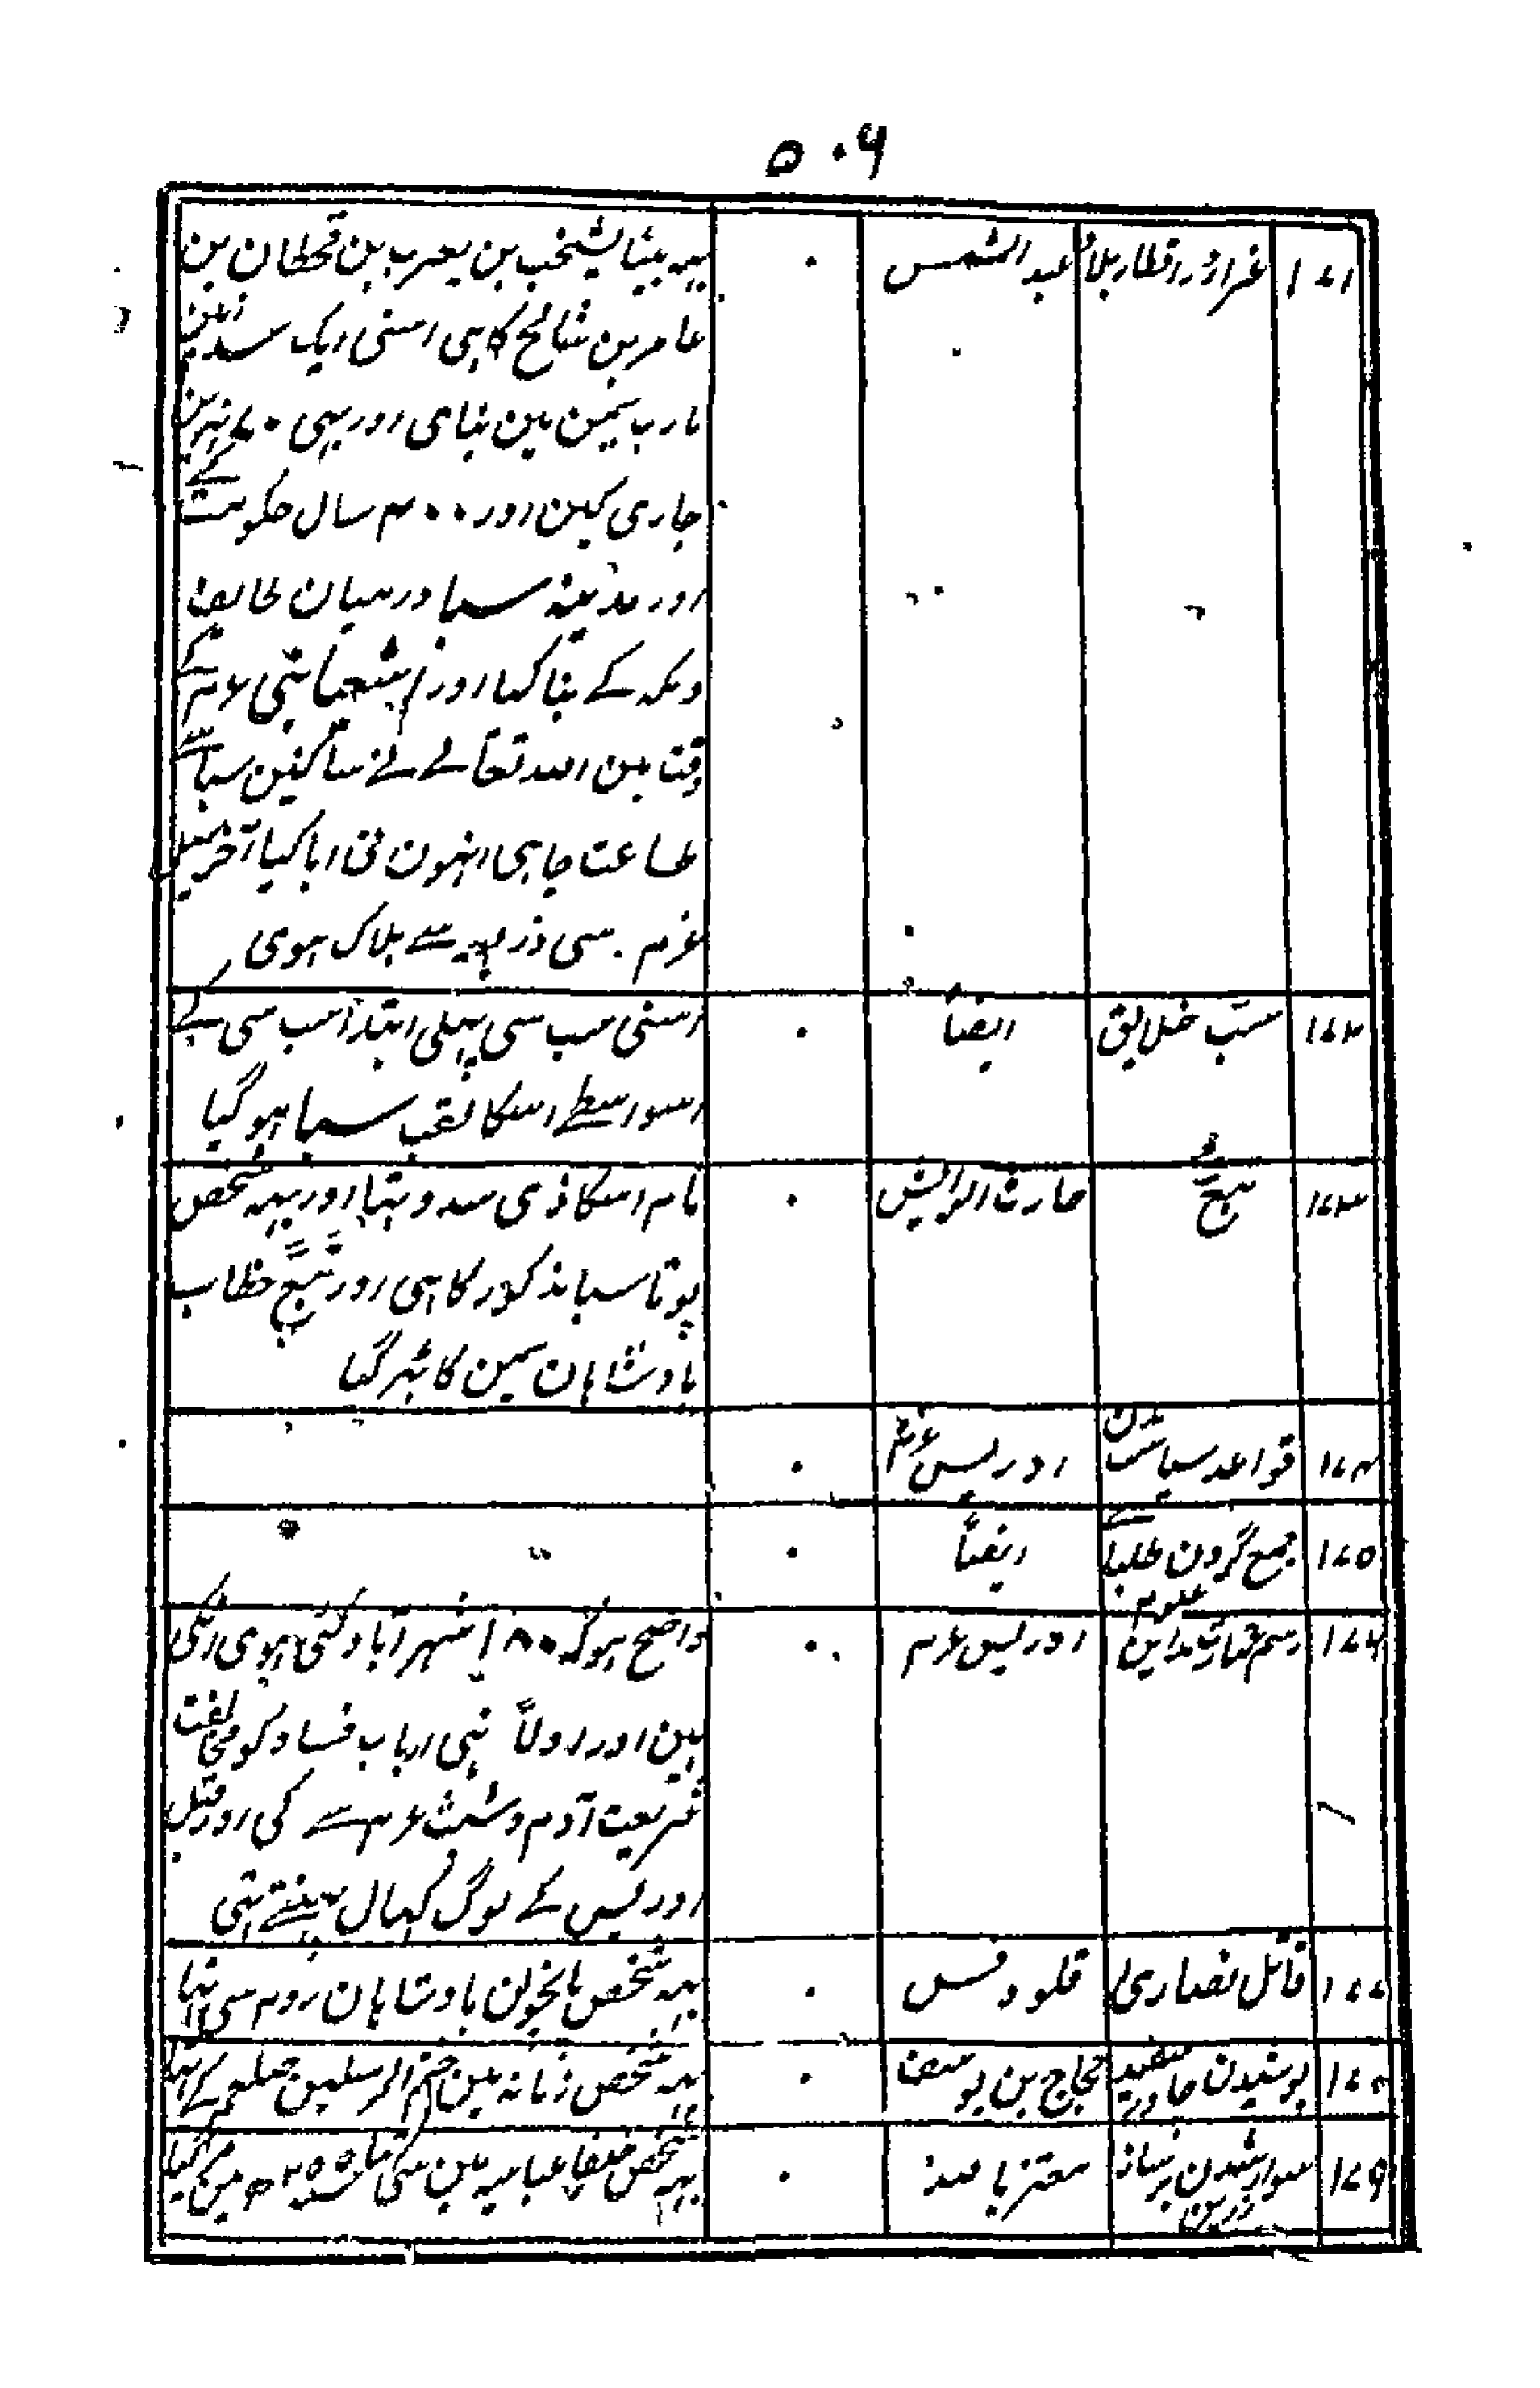 ۵۰۶
۱۷۱ غزا در اقطار بلاد عبد الشمس ۰ یہہ بیٹا یشخب بن یعرب بن قحطان بن
عامر بن شالخ کا ہی اسنی ایک سد
مارب یمن مین بنای اور سی ۷۰ نہرین
جاری کین اور ۴۰۰ سال حکومت کے
اور مدینہ سبا درمیان طایف
و مکہ کے بنا کیا اور شعیا نبی ع م کے
وقت مین اللہ تعالے نے ساکنین سبا سے
طاعت چاہی انہون نی ابا کیا آخر سیل
عرم سی ذریعہ سے ہلاک ہوی
۱۷۲ سب خلایق ایضاً ۰ اسنی سب سی پہلی ابتدا سب سی کے
اسواسطے اسکا لقب سبا ہو گیا
۱۷۳ تبع حارث الرایش ۰ نام اسکا ذی سدد تہا اور یہہ شخص
پوتا سبا مذکور کا ہی اور تبع خطاب
بادشاہان یمن کا ٹہر گیا
۱۷۴ قواعد سیاست مدن ادریس ع م ۰
۱۷۵ جمع کردن طلباے علوم ایضاً ۰
۱۷۶ رسم عمارت مداین ادریس ع م ۰ واضح ہو کہ ۱۸۰ شہر آباد کئی ہوی انکی
ہین اور اولاً نہی ارباب فساد کو مخالفت
شریعت آدم و شیث ع م سے کی اور قبل
ادریس کے لوگ کہال پہنتے تہی
۱۷۷ قاتل نصاری قلودفس ۰ یہہ شخص پانچوین بادشاہان روم سی تہا
۱۷۸ پوشیدن چادر سفید حجاج بن یوسف ۰ یہہ شخص زمانہ مین ختم المرسلین صلعم کے تہا
۱۷۹ سوار شدن بر ساز زرین معتز باللہ ۰ یہہ شخص خلفا عباسیہ مین سی تہا سنہ ۲۵۵ ہ مین مر گیا